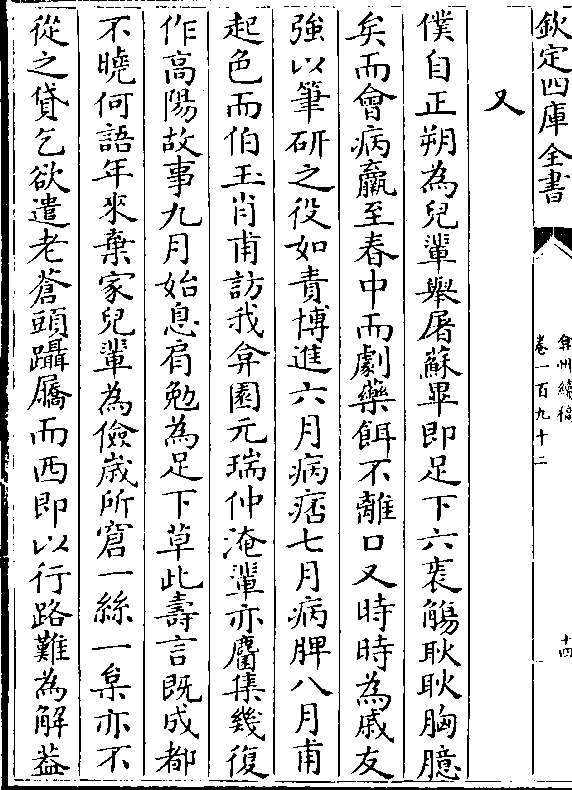 欽定四庫全書
弇州續稿
卷一百九十二
十四
又
僕自正朔為兒輩舉屠蘇畢即足下六袠觴耿耿胸臆
矣而會病羸至春中而劇藥餌不離口又時時為戚友
強以筆研之役如責博進六月病痞七月病脾八月甫
起色而伯玉肖甫訪我弇園元瑞仲淹輩亦麕集幾復
作高陽故事九月始息肩勉為足下草此壽言既成都
不曉何語年來棄家兒輩為儉歲所窘一絲一粟亦不
從之貸乞欲遣老蒼頭躡屩而西即以行路難為解葢